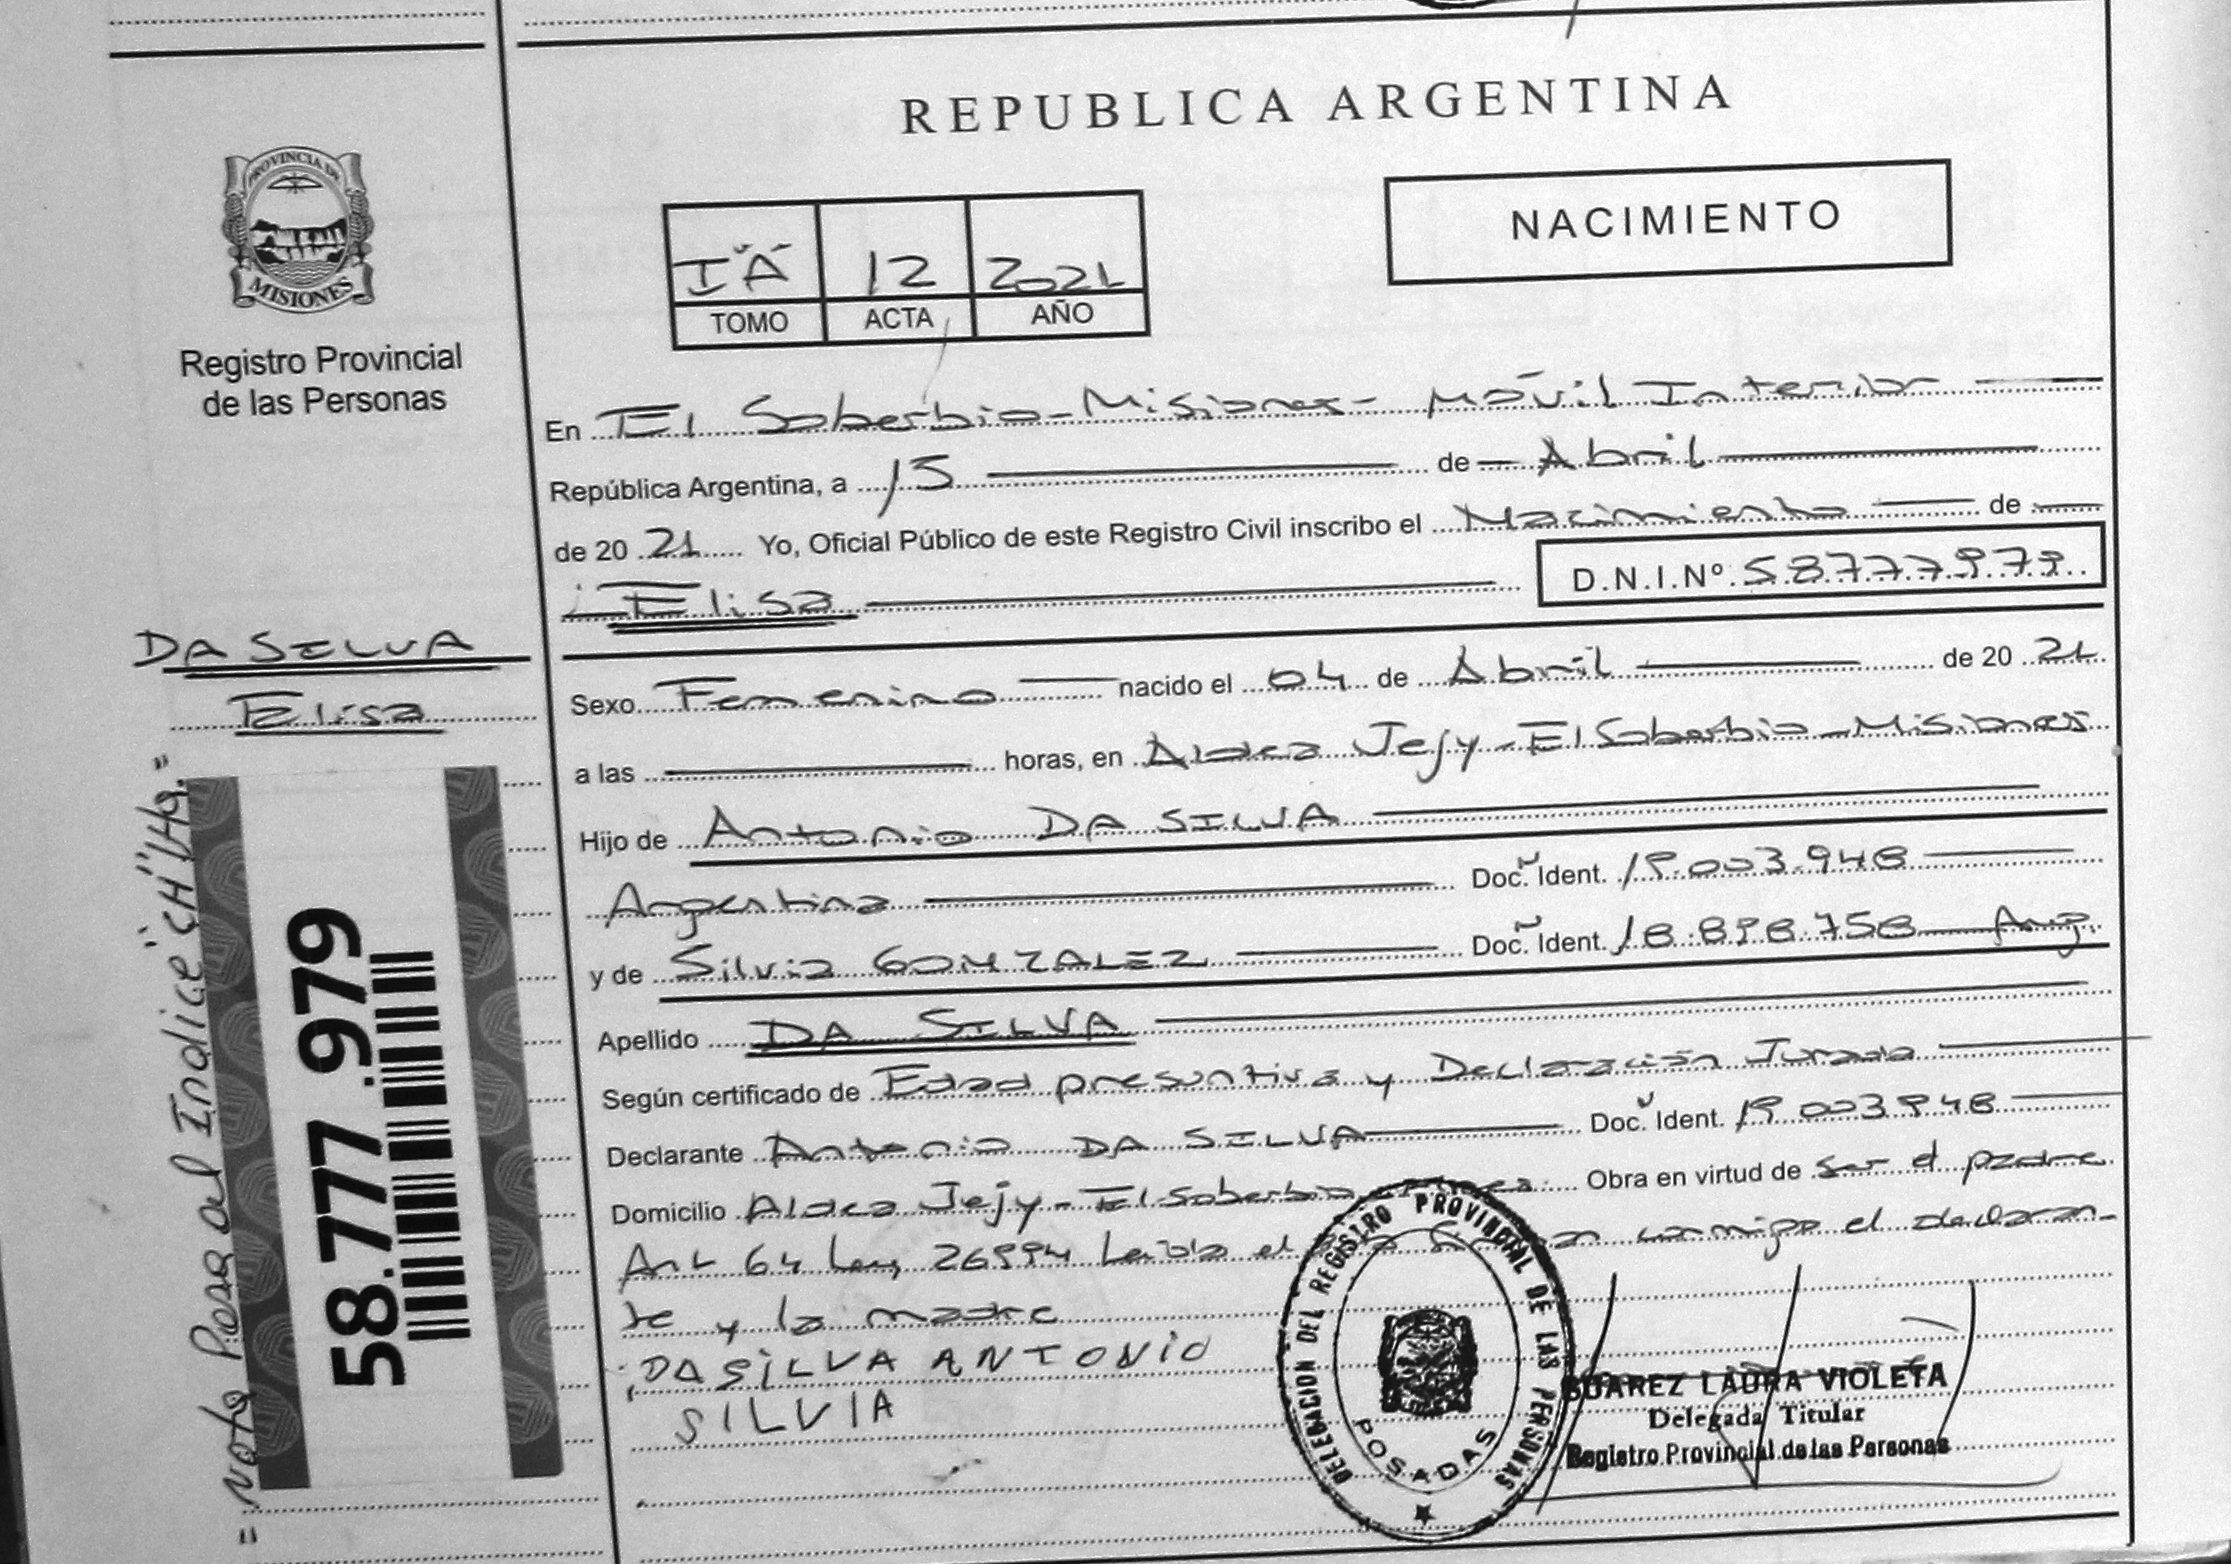 REPUBLICA ARGENTINA
PROVINCIA DE
MISIONES
Registro Provincial
de las Personas
NACIMIENTO
IÄ 12 2021
TOMO ACTA AÑO
En El Soberbio - Misiones - Móvil Interior
República Argentina, a 15 de Abril
de 20 21 Yo, Oficial Público de este Registro Civil inscribo el Nacimiento de
Elisa D.N.I.Nº 58777979
DA SILVA
Elisa
Sexo Femenino nacido el 04 de Abril de 20 21
a las horas, en Aldea Jejy - El Soberbio - Misiones
Hijo de Antonio DA SILVA
Argentina Doc. Ident. 19.003.948
y de Silvia GONZALEZ Doc. Ident. 18.898.758 Arg.
Apellido DA SILVA
Según certificado de Edad presuntiva y Declaración Jurada
Declarante Antonio DA SILVA Doc. Ident. 19 003 948
Domicilio Aldea Jejy - El Soberbio Obra en virtud de ser el padre
Art 64 Ley 26994 Leida el conmigo el declaran-
te y la madre
DA SILVA ANTONIO
SILVIA
"Nota Pasa al Indice "CH" Hq."
58.777.979
DELEGACION DEL REGISTRO PROVINCIAL DE LAS PERSONAS
POSADAS
SUAREZ LAURA VIOLETA
Delegada Titular
Registro Provincial de las Personas